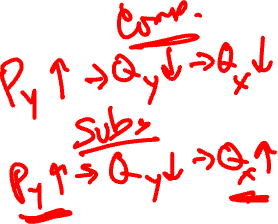 Comp.
Py ↑ → Qy ↓ → Qx ↓
Subs
Py ↑ → Qy ↓ → Qx ↑